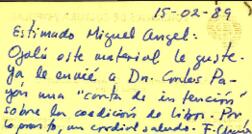 15-02-89
Estimado Miguel Angel:
Ojalá este material le guste.
Ya le envié a Dn. Carlos Pa-
yán una "carta de intención"
sobre las condición de libro. Por
lo pronto, un cordial saludo.